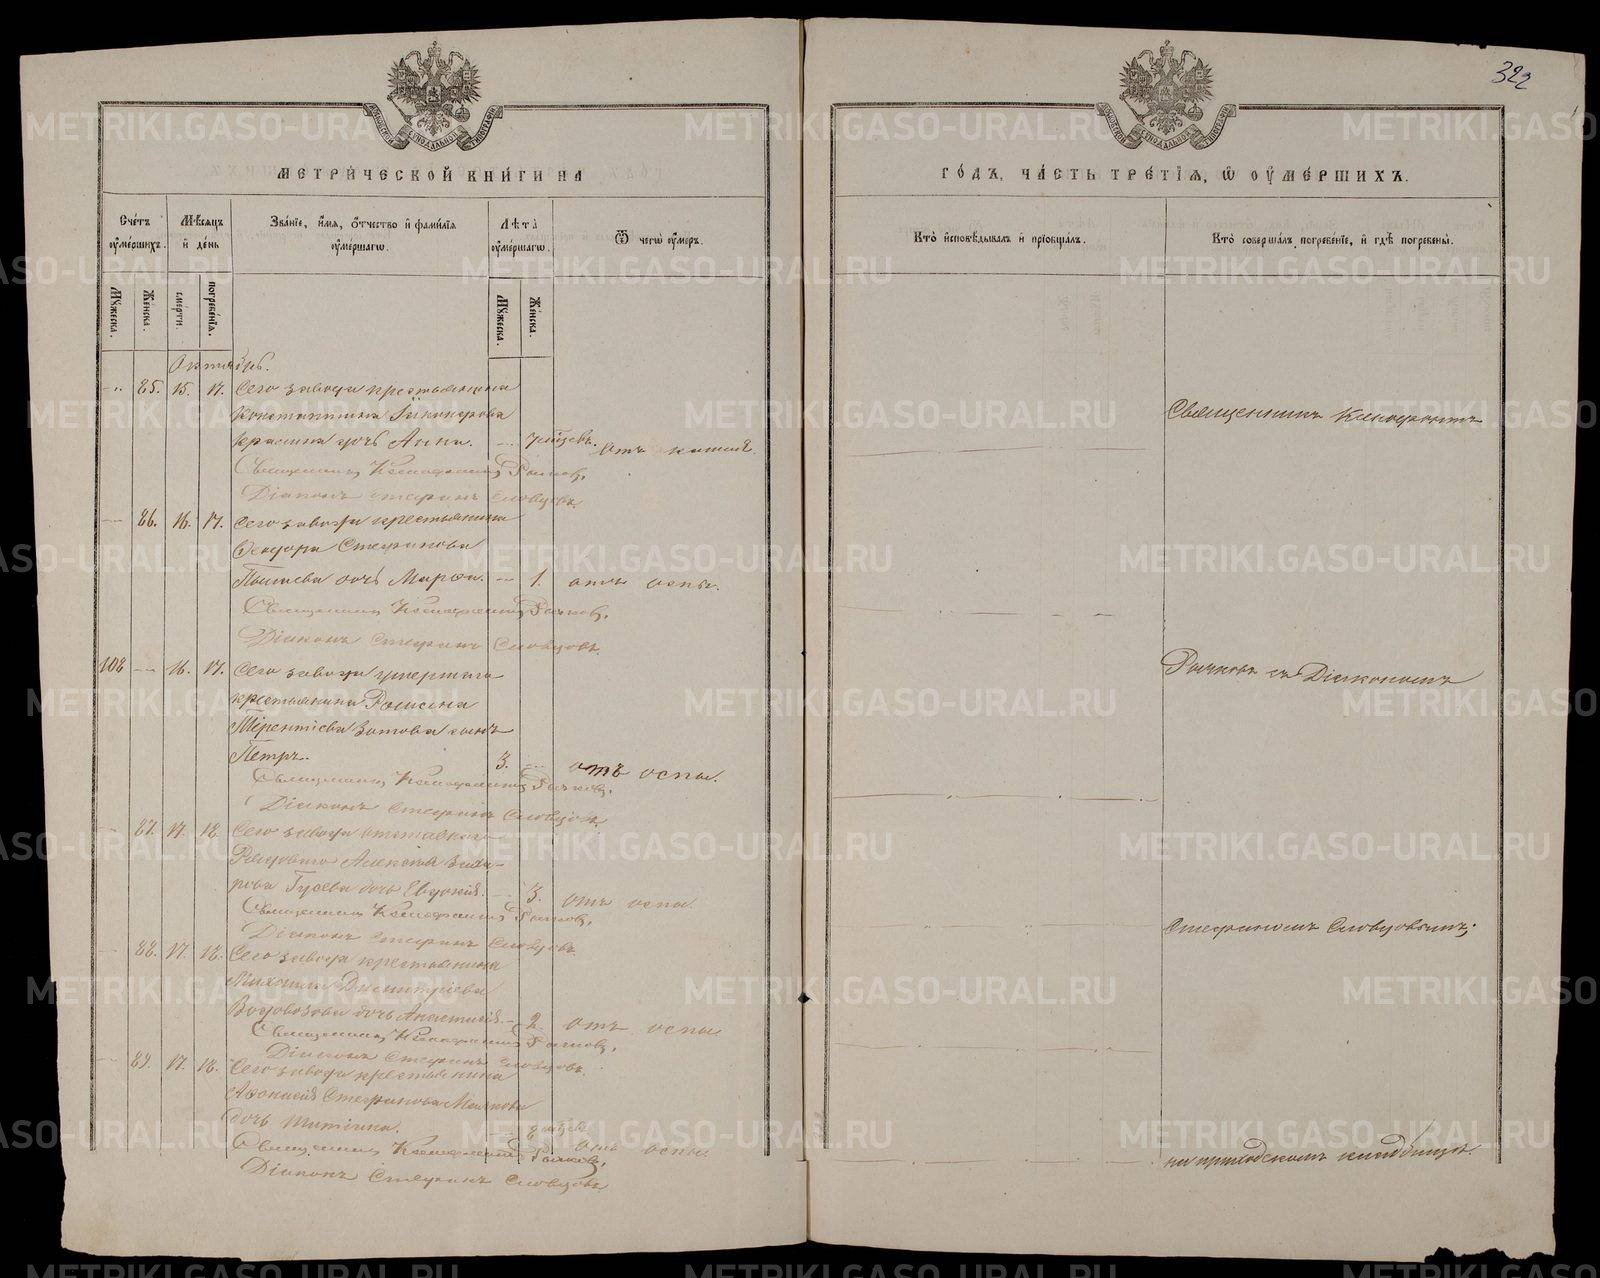 322
МЕТРИЧЕСКОЙ КНИГИ НА
ГОДЪ, ЧАСТЬ ТРЕТІЯ, Ѡ ОУМЕРШИХЪ.
Счетъ оумершихъ.
Мѣсяцъ и день
Званіе, имя, отчество и фамилія оумершагѡ.
Лѣта оумершагѡ.
Ѿ чегѡ оумеръ.
Кто исповѣдывалъ и пріобщалъ.
Кто совершалъ погребеніе, и гдѣ погребены.
Мужеска.
Женска.
смерти.
погребенія.
Мужеска.
Женска.
Октябрь.
85. 15. 17. Сего завода крестьянина
Константина Никифорова
дочь Анна. 7 мѣсяцъ. отъ кашля.
Священникъ Ксенофонтъ
Діаконъ Стефанъ Словцовъ.
86. 16. 17. Сего завода крестьянина
Ѳеодора Стефанова
дочь Марѳа. 1. отъ оспы.
Священникъ Ксенофонтъ
Діаконъ Стефанъ Словцовъ.
108 16. 17. Сего завода умершаго
крестьянина
Терентіева Зотова сынъ
Петръ. 3. отъ оспы.
Священникъ Ксенофонтъ
Діаконъ Стефанъ Словцовъ.
87. 17. 18. Сего завода отставнаго
Алексѣя Заха-
рова Гусева дочь Евдокія. 3. отъ оспы.
Священникъ Ксенофонтъ
Діаконъ Стефанъ Словцовъ.
88. 17. 18. Сего завода крестьянина
Михаила Димитріева
Водовозова дочь Анастасія. 2. отъ оспы
Священникъ Ксенофонтъ
Діаконъ Стефанъ Словцовъ.
89. 17. 18. Сего завода крестьянина
Аѳанасія Стефанова
дочь 8 мѣсяц. отъ оспы.
Священникъ Ксенофонтъ
Діаконъ Стефанъ Словцовъ
Священникъ Ксенофонтъ
съ Діакономъ
Стефаномъ Словцовымъ;
на приходскомъ кладбищѣ.
METRIKI.GASO-URAL.RU